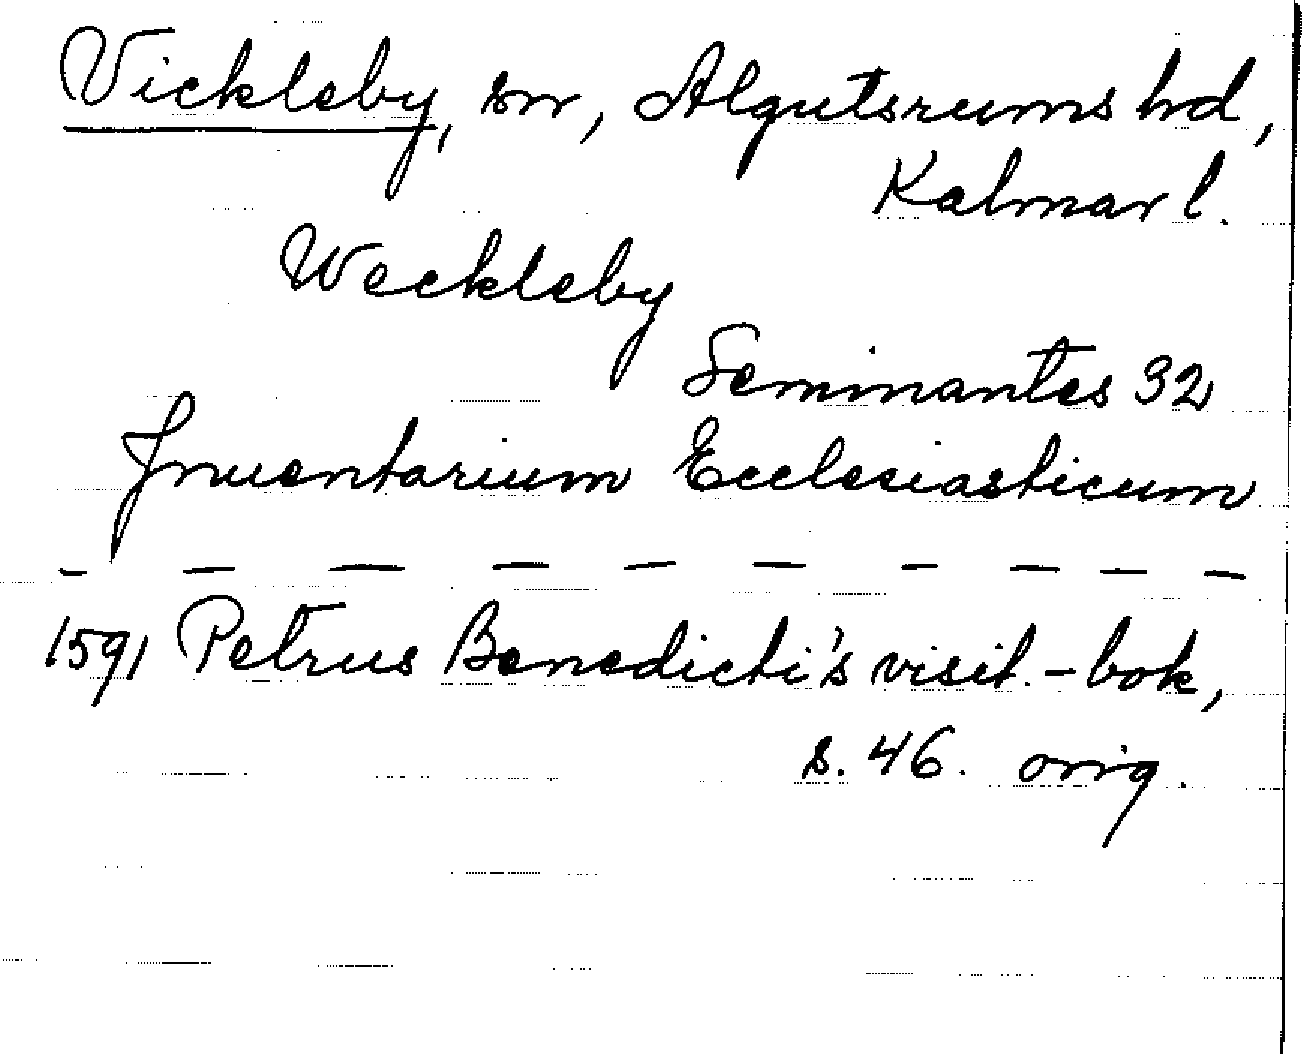 Vickleby, sn, Algutsrums hd,
Kalmar l.
Weckleby
Seminantes 32
Inuentarium Ecclesiasticum
— — — — — — — — — —
1591 Petrus Benedicti's visit.-bok,
s. 46. orig.